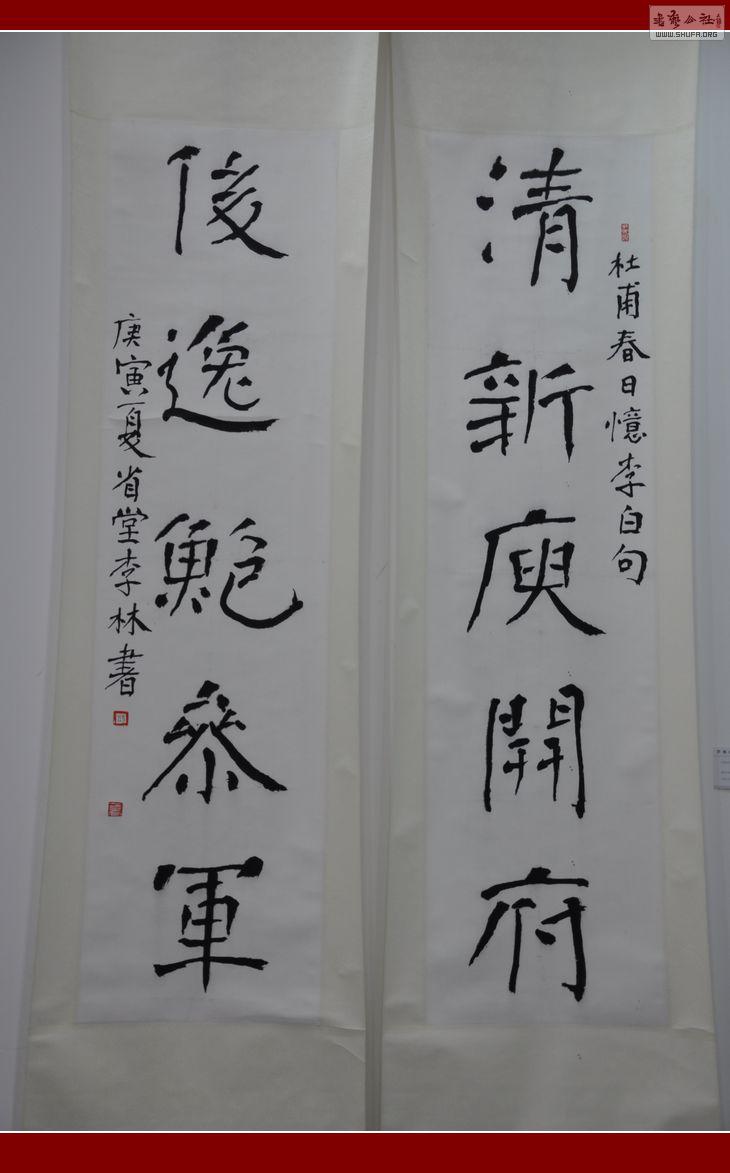 杜甫春日憶李白句
清新庾開府
俊逸鮑參軍
庚寅夏省堂李林書
書藝公社
www.SHUFA.ORG